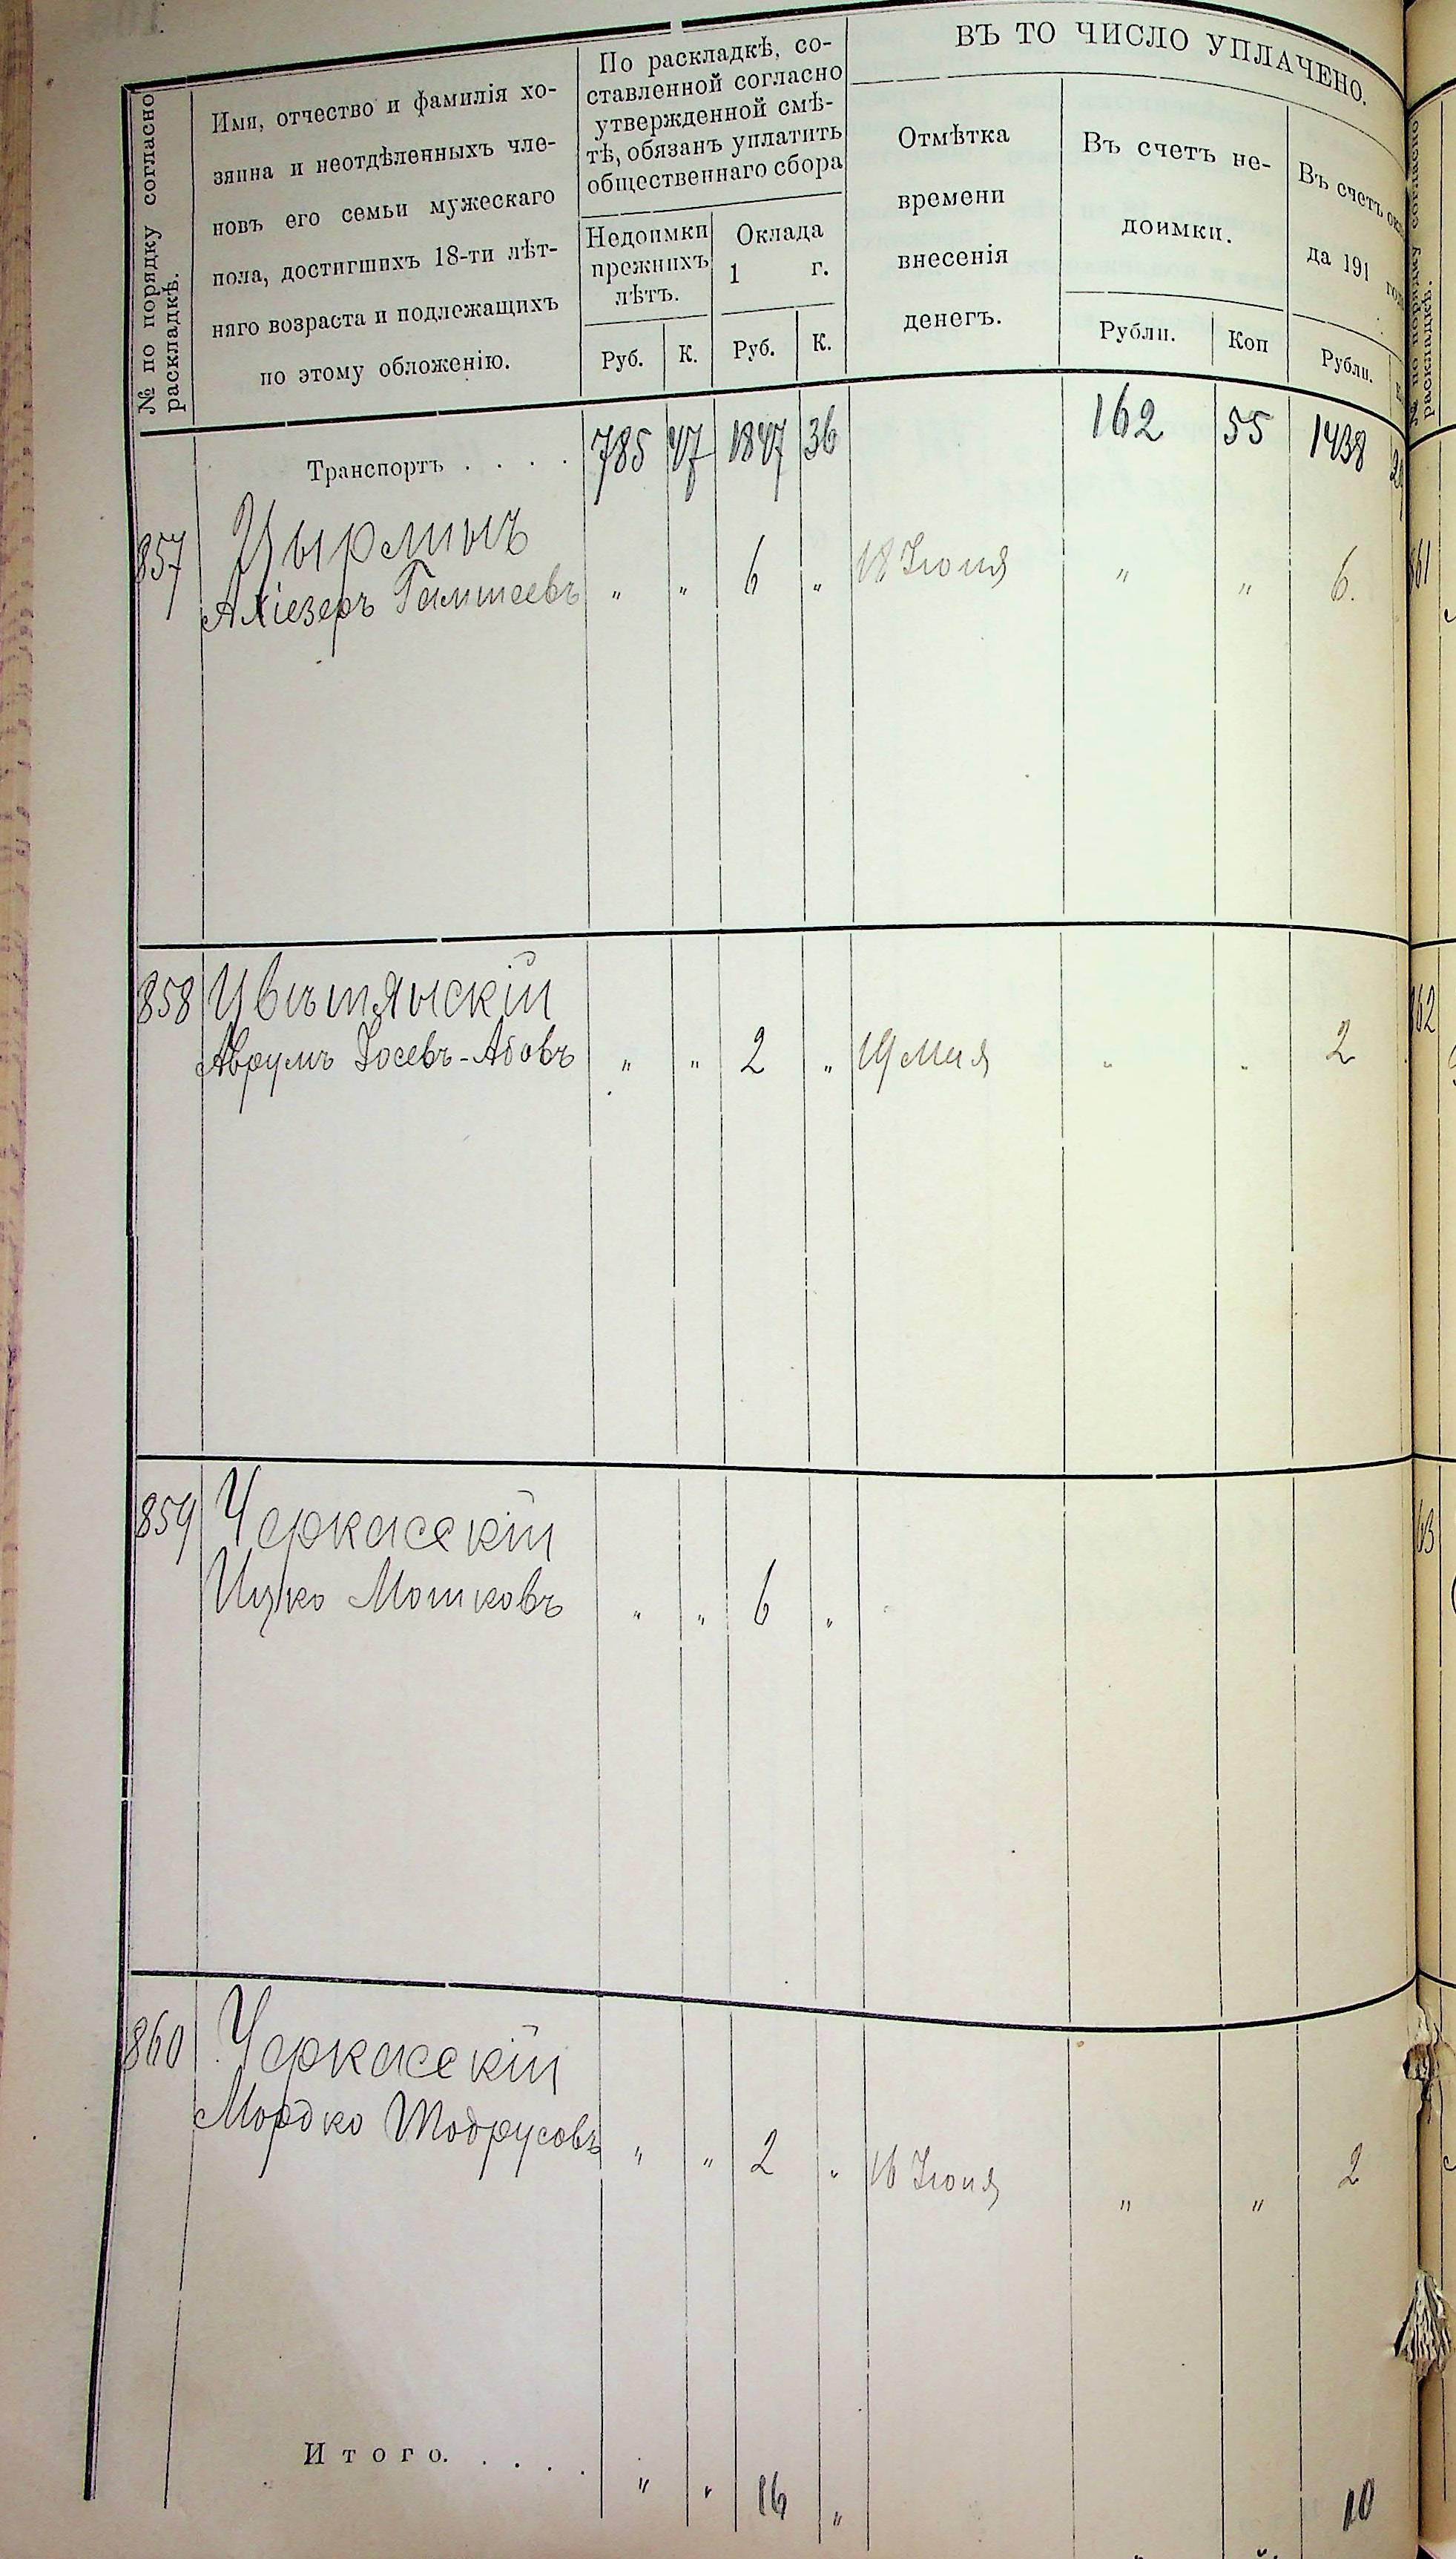 № по порядку согласно
раскладкѣ.
Имя, отчество и фамилія хо-
зяина и неотдѣленныхъ чле-
новъ его семьи мужескаго
пола, достигшихъ 18-ти лѣт-
няго возраста и подлежащихъ
по этому обложенію.
По раскладкѣ, со-
ставленной согласно
утвержденной смѣ-
тѣ, обязанъ уплатить
общественнаго сбора
Недоимки
прежнихъ
лѣтъ.
Оклада
1 г.
Руб. К. Руб. К.
ВЪ ТО ЧИСЛО УПЛАЧЕНО.
Отмѣтка
времени
внесенія
денегъ.
Въ счетъ не-
доимки.
Рубли. Коп
Въ счетъ
да 191
Рубли.
Транспортъ . . . . 785 47 1847 36 162 55 1438
857 Цырлинъ
Ахіезеръ " " 6 " 18 Іюня " " 6.
858 Цвѣтянскій
Аврумъ Іосевъ-Абовъ " " 2 " 19 Мая " " 2
859 Черкасскій
Ицко Мошковъ " " 6 "
860 Черкасскій
Мордко Тодрусовъ " " 2 " 16 Іюня " " 2
Итого. . . . . " " 16 " 10